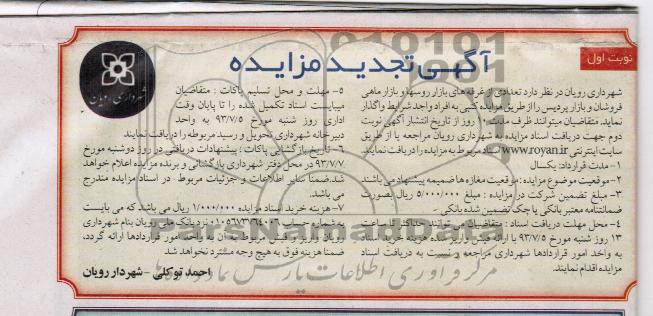 نوبت اول
آگهی تجدید مزایده
شهرداری رویان
شهرداری رویان در نظر دارد تعدادی از غرفه های بازار روسها و بازار ماهی
فروشان و بازار پردیس را از طریق مزایده کتبی به افراد واجد شرایط واگذار
نماید. متقاضیان میتوانند ظرف مدت ۱۰ روز از تاریخ انتشار آگهی نوبت
دوم جهت دریافت اسناد مزایده به شهرداری رویان مراجعه یا از طریق
سایت اینترنتی www.royan.ir اسناد مربوط به مزایده را دریافت نمایند.
۱- مدت قرارداد: یکسال
۲- موقعیت موضوع مزایده: موقعیت مغازه ها ضمیمه پیشنهاد می باشند
۳- مبلغ تضمین شرکت در مزایده : مبلغ ۵/۰۰۰/۰۰۰ ریال بصورت
ضمانتنامه معتبر بانکی یا چک تضمین شده بانکی
۴- محل مهلت دریافت اسناد : متقاضیان میتوانند حداکثر تا ساعت
۱۳ روز شنبه مورخ ۹۳/۷/۵ با ارائه فیش واریز شده هزینه خرید اسناد
به واحد امور قراردادها شهرداری مراجعه و نسبت به دریافت اسناد
مزایده اقدام نمایند.
۵- مهلت و محل تسلیم پاکات : متقاضیان
میبایست اسناد تکمیل شده را تا پایان وقت
اداری روز شنبه مورخ ۹۳/۷/۵ به واحد
دبیرخانه شهرداری تحویل و رسید مربوطه را دریافت نمایند
۶- تاریخ بازگشایی پاکات : پیشنهادات دریافتی در روز دوشنبه مورخ
۹۳/۷/۷ در محل دفتر شهرداری بازگشائی و برنده مزایده اعلام خواهد
شد.ضمنا سایر اطلاعات و جزئیات مربوط در اسناد مزایده مندرج
می باشد.
۷- هزینه خرید اسناد مزایده ۱/۰۰۰/۰۰۰ ریال می باشد که می بایست
به شماره حساب نزد بانک ملی رویان بنام شهرداری
رویان واریز و فیش مربوط به آن به واحد امور قراردادها ارائه گردد.
ضمنا هزینه فوق به هیچ وجه مسترد نخواهد شد
احمد توکلی - شهردار رویان
ParsNamadData
مرکز فرآوری اطلاعات پارس نماد داده ها